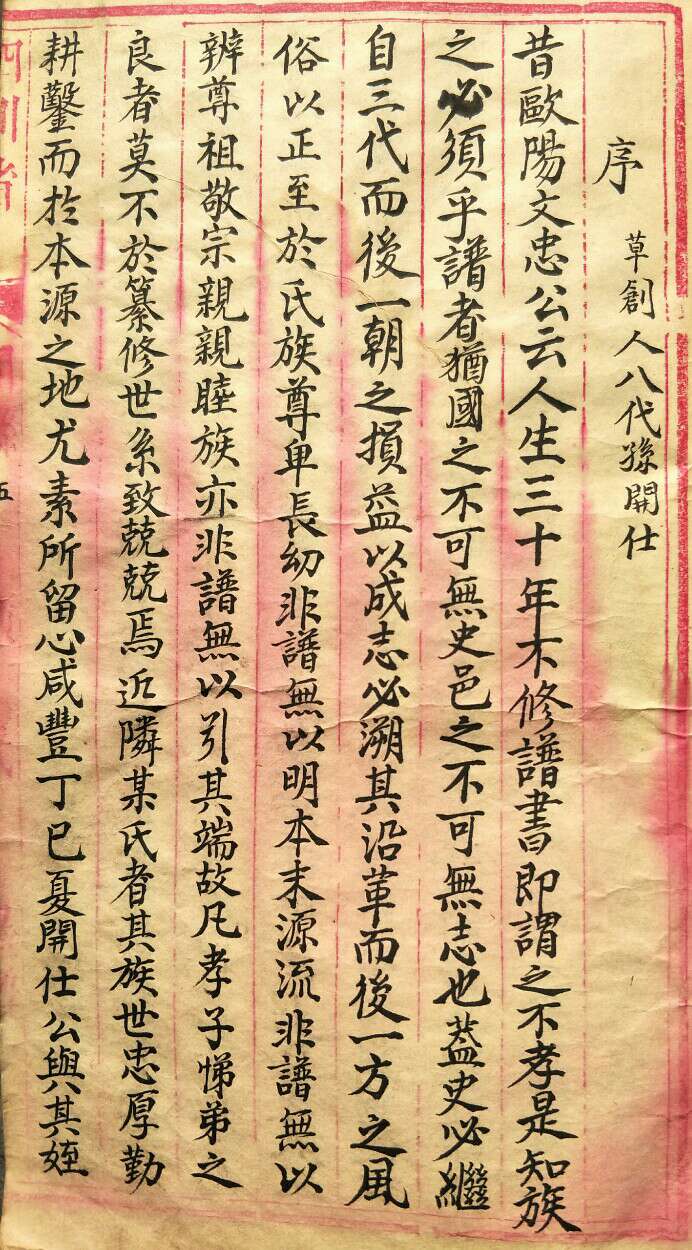 序 草創人八代孫開仕
昔歐陽文忠公云人生三十年不修譜書即謂之不孝是知族
之必須乎譜者猶國之不可無史邑之不可無志也蓋史必繼
自三代而後一朝之損益以成志必溯其沿革而後一方之風
俗以正至於氏族尊卑長幼非譜無以明本末源流非譜無以
辨尊祖敬宗親親睦族亦非譜無以引其端故凡孝子悌弟之
良者莫不於纂修世系致兢兢焉近隣某氏者其族世忠厚勤
耕鑿而扵本源之地尤素所留心咸豐丁巳夏開仕公與其姪
四川省
五